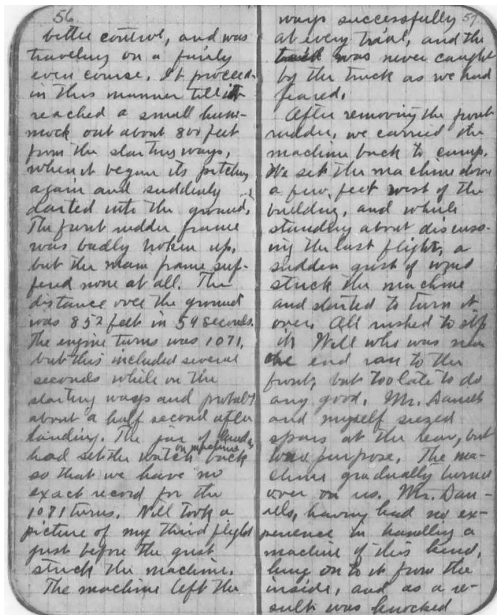 56
better control, and was
traveling on a fairly
even course. It proceed-
in this manner till it
reached a small hum-
mock out about 800 feet
from the starting ways,
when it began its pitching
again and suddenly
darted into the ground.
The front rudder frame
was badly broken up,
but the main frame suf-
fered none at all. The
distance over the ground
was 852 feet in 59 seconds.
The engine turns was 1071,
but this included several
seconds while on the
starting ways and probably
about a half second after
landing. The jar of landing
had set the watch on machine back
so that we have no
exact record for the
1071 turns. Will took a
picture of my third flight
just before the gust
struck the machine.
The machine left the
57
ways successfully
at every trial, and the
was never caught
by the truck as we had
feared.
After removing the front
rudder, we carried the
machine back to camp.
We set the machine down
a few feet west of the
building, and while
standing about discuss-
ing the last flight, a
sudden gust of wind
struck the machine
and started to turn it
over. All rushed to stop
it. Will who was near
one end ran to the
front, but too late to do
any good. Mr. Daniels
and myself seized
spars at the rear, but
to no purpose. The ma-
chine gradually turned
over on us. Mr. Dan-
iels, having had no ex-
perience in handling a
machine of this kind,
hung on to it from the
inside, and as a re-
sult was knocked